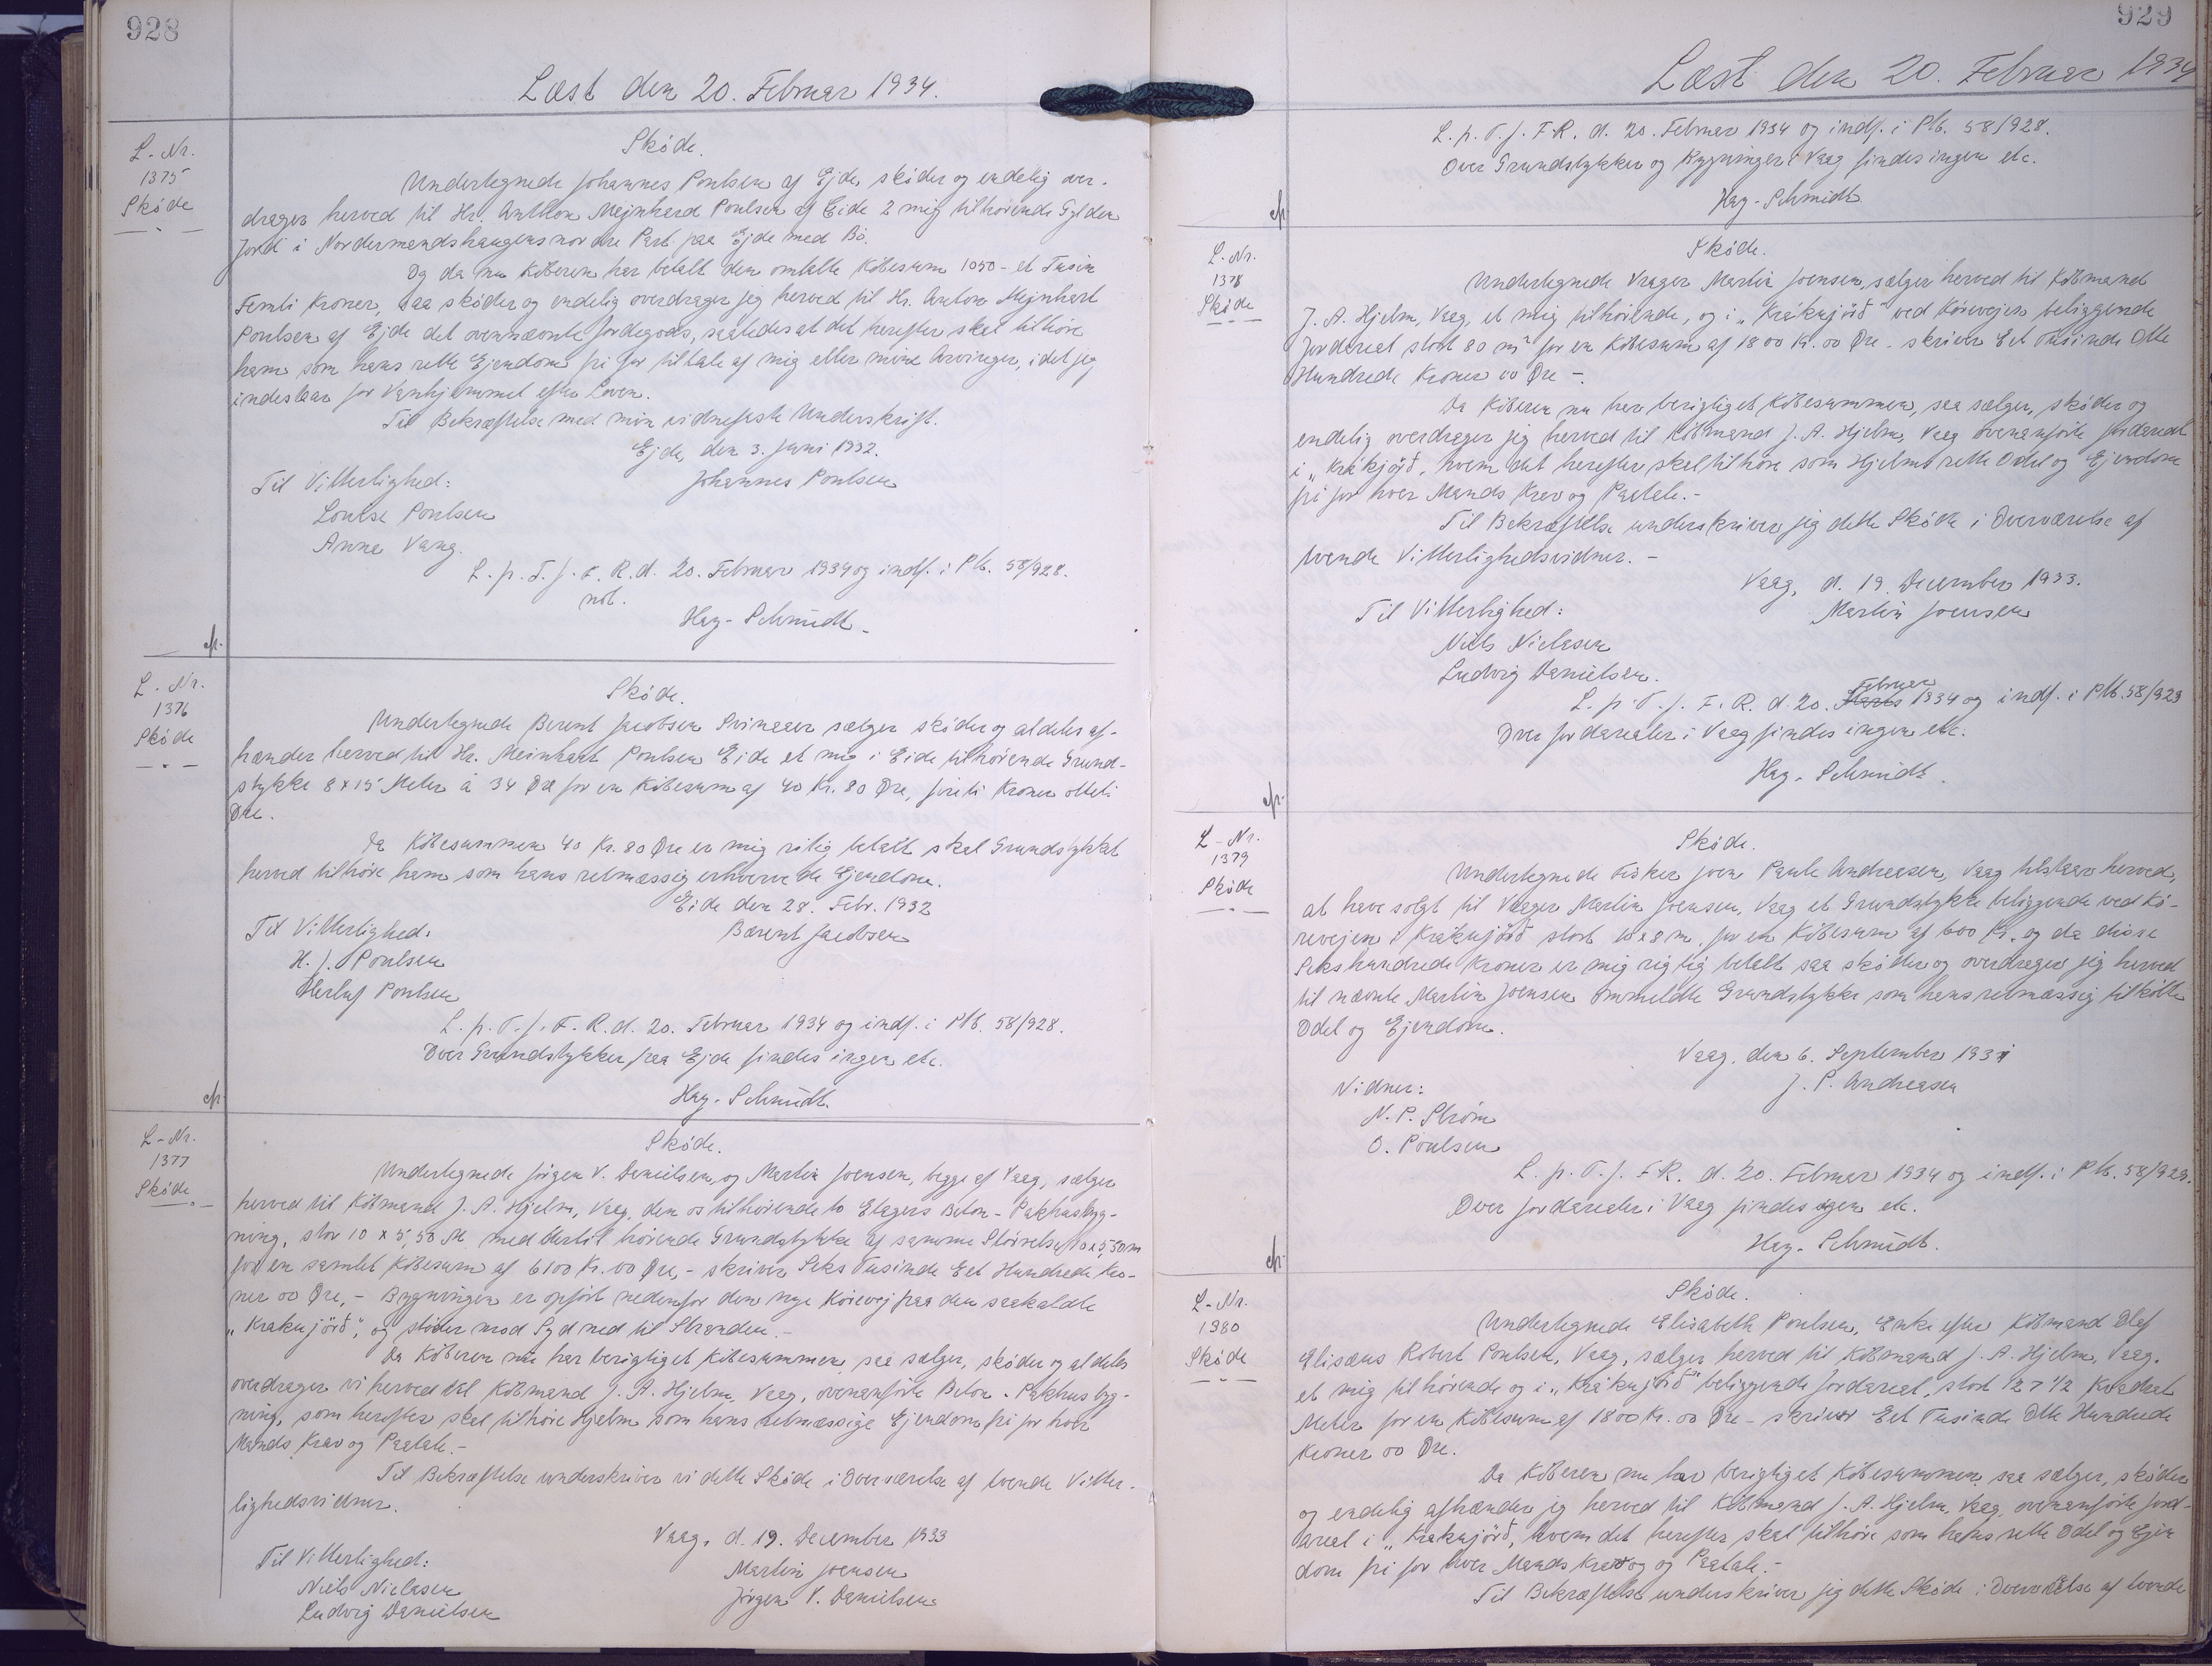 928
Læst den 20. Februar 1934.
L-Nr.
1375
Skøde
Skøde.
Undertegnede Johannes Poulsen af Ejde, skøder og endelig over-
drager herved til Hr. Anthon Mejnhard Poulsen af Eide 2 mig tilhørende Gylden
Jord i Nordermandshaugens nordre Part paa Ejde med Bø.
Og da nu Køberen har betalt den omtalte Købesum 1050 - et Tusin
Femti Kroner, saa skøder og endelig overdrager jeg herved til Hr. Anton Mejnhart
Poulsen af Ejde det ovennævnte Jordegods, saaledes at det herefter skal tilhøre
ham som hans rette Ejendom fri for tiltale af mig eller mine Arvinger, idet jeg
indestaar for Vanhjemmel efter Loven.
Til Bekræftelse med min vidnefaste Underskrift.
Ejde, den 3. Juni 1932.
Til Vitterlighed: Johannes Poulsen
Louise Poulsen
Anna Vang.
L. p. T. f. F. R. d. 20. Februar 1934 og indf. i Ptb. 58/928.
not.
Hay-Schmidt.
L-Nr.
1376
Skøde
Skøde.
Undertegnede Berent Jacobsen Svinaaer sælger skøder og aldeles af-
hænder herved til Hr. Meinhart Poulsen Eide et mig i Eide tilhørende Grund-
stykke 8 x 15 Meter à 34 Øre for en Købesum af 40 Kr. 80 Øre, fireti Kroner otteti
Øre.
Da Købesummen 40 Kr. 80 Øre er mig ritig betalt skal Grundstykket
herved tilhøre ham som hans retmæssig erhvervede Ejendom.
Eide den 28. Febr. 1932
Til Vitterlighed: Bærent Jacobsen
H. J. Poulsen
Herluf Poulsen
L. p. T. f. F. R. d. 20. Februar 1934 og indf. i Ptb. 58/928.
Over Grundstykker paa Ejde findes ingen etc.
Hay-Schmidt.
L-Nr.
1377
Skøde
Skøde.
Undertegnede Jørgen V. Danielsen, og Martin Joensen, begge af Vaag, sælger
herved til Købmand J. A. Hjelm, Vaag, den os tilhørende to Etagers Beton-Pakhusbyg-
ning, stor 10 x 5,50 M. med dertil hørende Grundstykke af samme Størrelse, 10 x 5,50 m
for en samlet Købesum af 6100 Kr. 00 Øre, - skriver Seks Tusinde Eet Hundrede Kro-
ner 00 Øre, - Bygningen er opført nedenfor den nye Kørevej paa den saakaldte
"Krakujørð", og støder mod Syd ned til Stranden. -
Da Køberen nu har berigtiget Købesummen, saa sælger, skøder og aldeles
overdrager vi herved til Købmand J. A. Hjelm, Vaag, ovenanførte Beton-Pakhusbyg-
ning, som herefter skal tilhøre Hjelm som hans retmæssige Ejendom fri for hver
Mands Krav og Paatale. -
Til Bekræftelse underskriver vi dette Skøde i Overværelse af tvende Vitter-
lighedsvidner.
Vaag, d. 19. December 1933
Til Vitterlighed: Martin Joensen
Niels Nielasen Jørgen V. Danielsen
Ludvig Danielsen
929
Læst den 20. Februar 1934
L. p. T. f. F. R. d. 20. Februar 1934 og indf. i Ptb. 58/928.
Over Grundstykker og Bygninger i Vaag findes ingen etc.
Hay-Schmidt.
L-Nr.
1378
Skøde
Skøde.
Undertegnede Vrager Martin Joensen, sælger herved til Købmand
J. A. Hjelm, Vaag, et mig tilhørende, og i "Krákujørð" ved Kørevejen beliggende
Jordareal stort 80 m² for en Købesum af 1800 Kr. 00 Øre - skriver Eet Tusinde Otte
Hundrede Kroner 00 Øre -.
Da Køberen nu har berigtiget Købesummen, saa sælger, skøder og
endelig overdrager jeg herved til Købmand J. A. Hjelm, Vaag ovenanførte Jordareal
i "Krákjørð, hvem det herefter skal tilhøre som Hjelms rette Odel og Ejendom
fri for hver Mands Krav og Paatale. -
Til Bekræftelse underskriver jeg dette Skøde i Overværelse af
tvende Vitterlighedsvidner. -
Vaag, d. 19. December 1933.
Til Vitterlighed: Martin Joensen
Niels Nielasen
Ludvig Danielsen.
L. p. T. f. F. R. d. 20. Februar 1934 og indf. i Ptb. 58/929
Over Jordarealer i Vaag findes ingen etc.
Hay-Schmidt.
L-Nr.
1379
Skøde
Skøde.
Undertegnede Fisker Joen Paule Andreasen, Vaag tilstaar herved,
at have solgt til Vrager Martin Joensen, Vaag et Grundstykke beliggende ved Kø-
revejen i Krákujørð stort 10 x 8 m. for en Købesum af 600 Kr. og da disse
Sekshundrede Kroner er mig rigtig betalt saa skøder og overdrager jeg herved
til nævnte Martin Joensen ommeldte Grundstykke som hans retmæssig tilkøbte
Odel og Ejendom.
Vaag, den 6. September 1931
Vidner: J. P. Andreasen
N. P. Strøm
O. Poulsen
L. p. T. f. F. R. d. 20. Februar 1934 og indf. i Ptb. 58/929.
Over Jordarealer i Vaag findes igen etc.
Hay-Schmidt.
L-Nr.
1380
Skøde
Skøde.
Undertegnede Elisabeth Poulsen, Enke efter Købmand Olaf
Elisæus Robert Poulsen, Vaag, sælger herved til Købmand J. A. Hjelm, Vaag,
et mig tilhørende og i "Krákujørð" beliggende Jordareal, stort 127 1/2 Kvadrat
Meter for en Købesum af 1800 Kr. 00 Øre - skriver Eet Tusinde Otte Hundrede
Kroner 00 Øre.
Da Køberen nu har berigtiget Købesummen, saa sælger, skøder
og endelig afhænder jeg herved til Købmand J. A. Hjelm, Vaag, ovenanførte Jord-
areal i "Krakujørð, hvem det herefter skal tilhøre som hans rette Odel og Ejen
dom fri for hver Mands Krav og og Paatale. -
Til Bekræftelse underskriver jeg dette Skøde i Overværelse af tvende